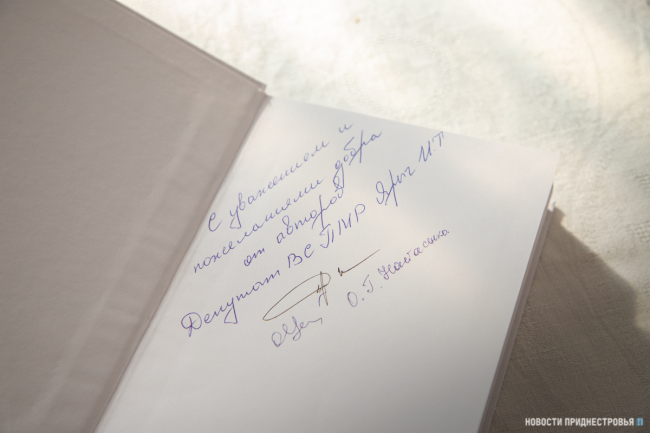 С уважением и
пожеланиями добра
от авторов
Депутат ВС ПМР Ярыч И.П.
О.Г. Настасенко
НОВОСТИ ПРИДНЕСТРОВЬЯ